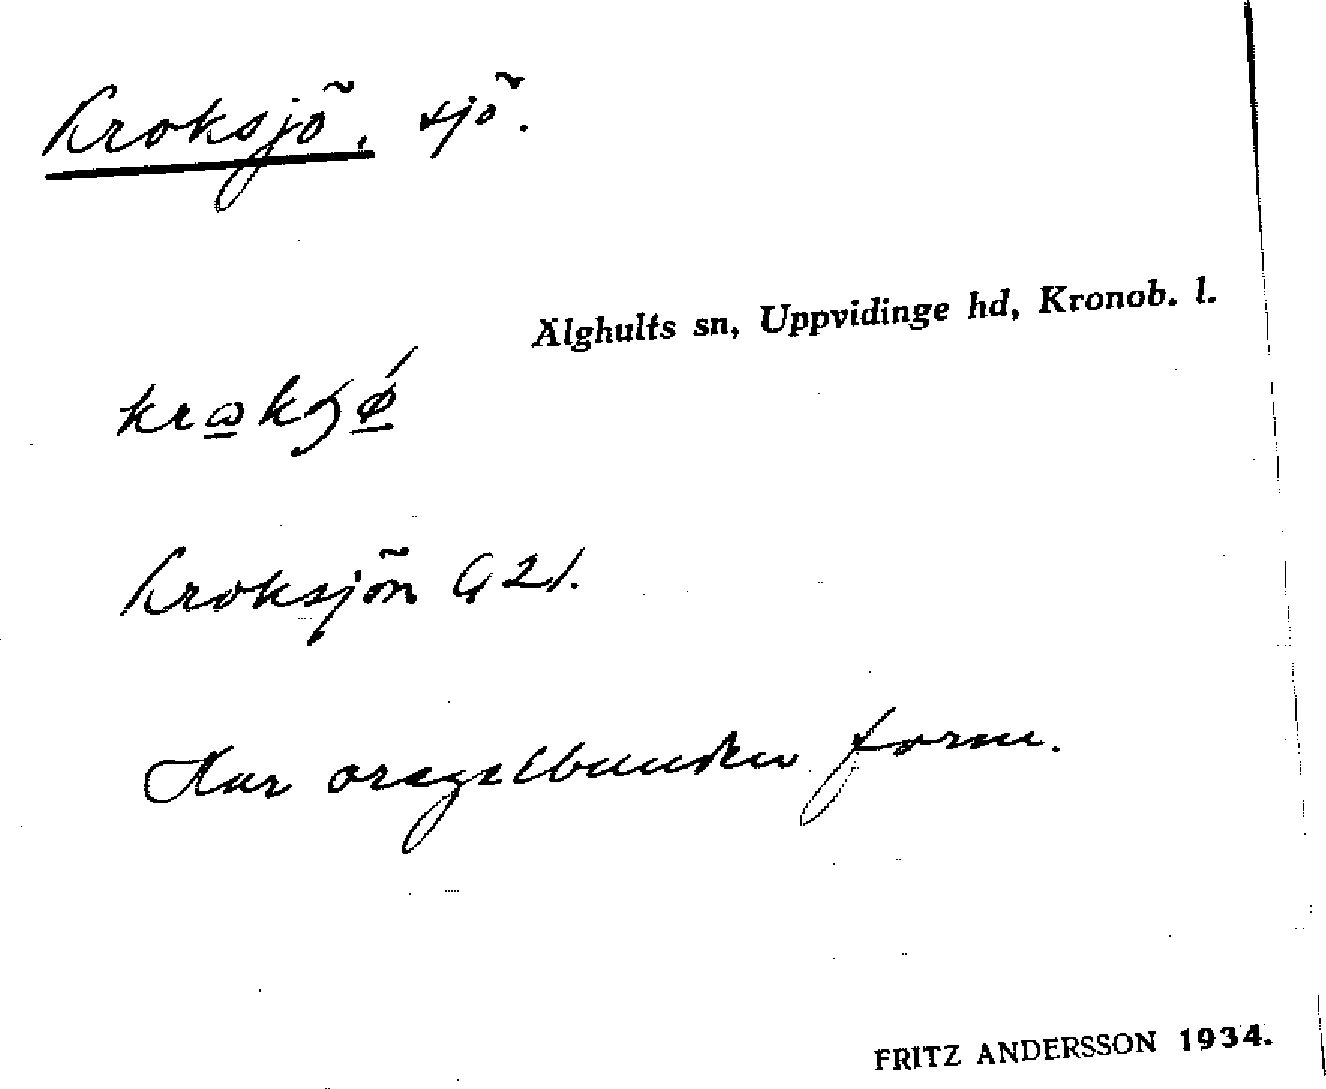 Kroksjö, sjö.
Älghults sn, Uppvidinge hd, Kronob. l.
Kroksjön G 21.
Har oregelbunden form.
FRITZ ANDERSSON 1934.